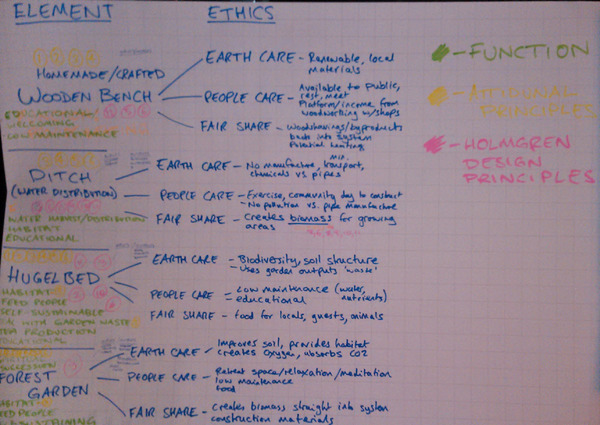 ELEMENT
ETHICS
HOMEMADE/CRAFTED
WOODEN BENCH
EDUCATIONAL/
WELCOMING
LOW MAINTENANCE
EARTH CARE - Renewable, local
materials
PEOPLE CARE - Available to public,
rest, meet
Platform/income from
woodworking w/shops
FAIR SHARE - Woodshavings/byproducts
back into system
Potential heating
DITCH
(WATER DISTRIBUTION)
WATER HARVEST/DISTRIBUTION
HABITAT
EDUCATIONAL
EARTH CARE - No manufacture, min. transport,
chemicals vs. pipes
PEOPLE CARE - Exercise, community day to construct
- No pollution vs. pipe manufacture
FAIR SHARE - Creates biomass for growing
areas
HUGELBED
HABITAT
FEED PEOPLE
SELF-SUSTAINABLE
WITH GARDEN WASTE
PRODUCTION
EARTH CARE - Biodiversity, soil structure
- Uses garden outputs 'waste'
PEOPLE CARE - Low maintenance (water,
nutrients)
- educational
FAIR SHARE - food for locals, guests, animals
SUCCESSION
FOREST
GARDEN
PEOPLE
EARTH CARE - Improves soil, provides habitat
creates oxygen, absorbs CO2
PEOPLE CARE - Retreat space/relaxation/meditation
low maintenance
food
FAIR SHARE - Creates biomass straight into system
construction materials
- FUNCTION
- ATTITUDINAL
PRINCIPLES
- HOLMGREN
DESIGN
PRINCIPLES